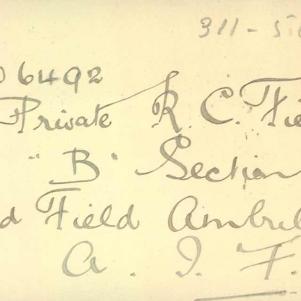 311-
6492
Private R. C. Fie
"B" Section
d Field Ambul
A. I. F.